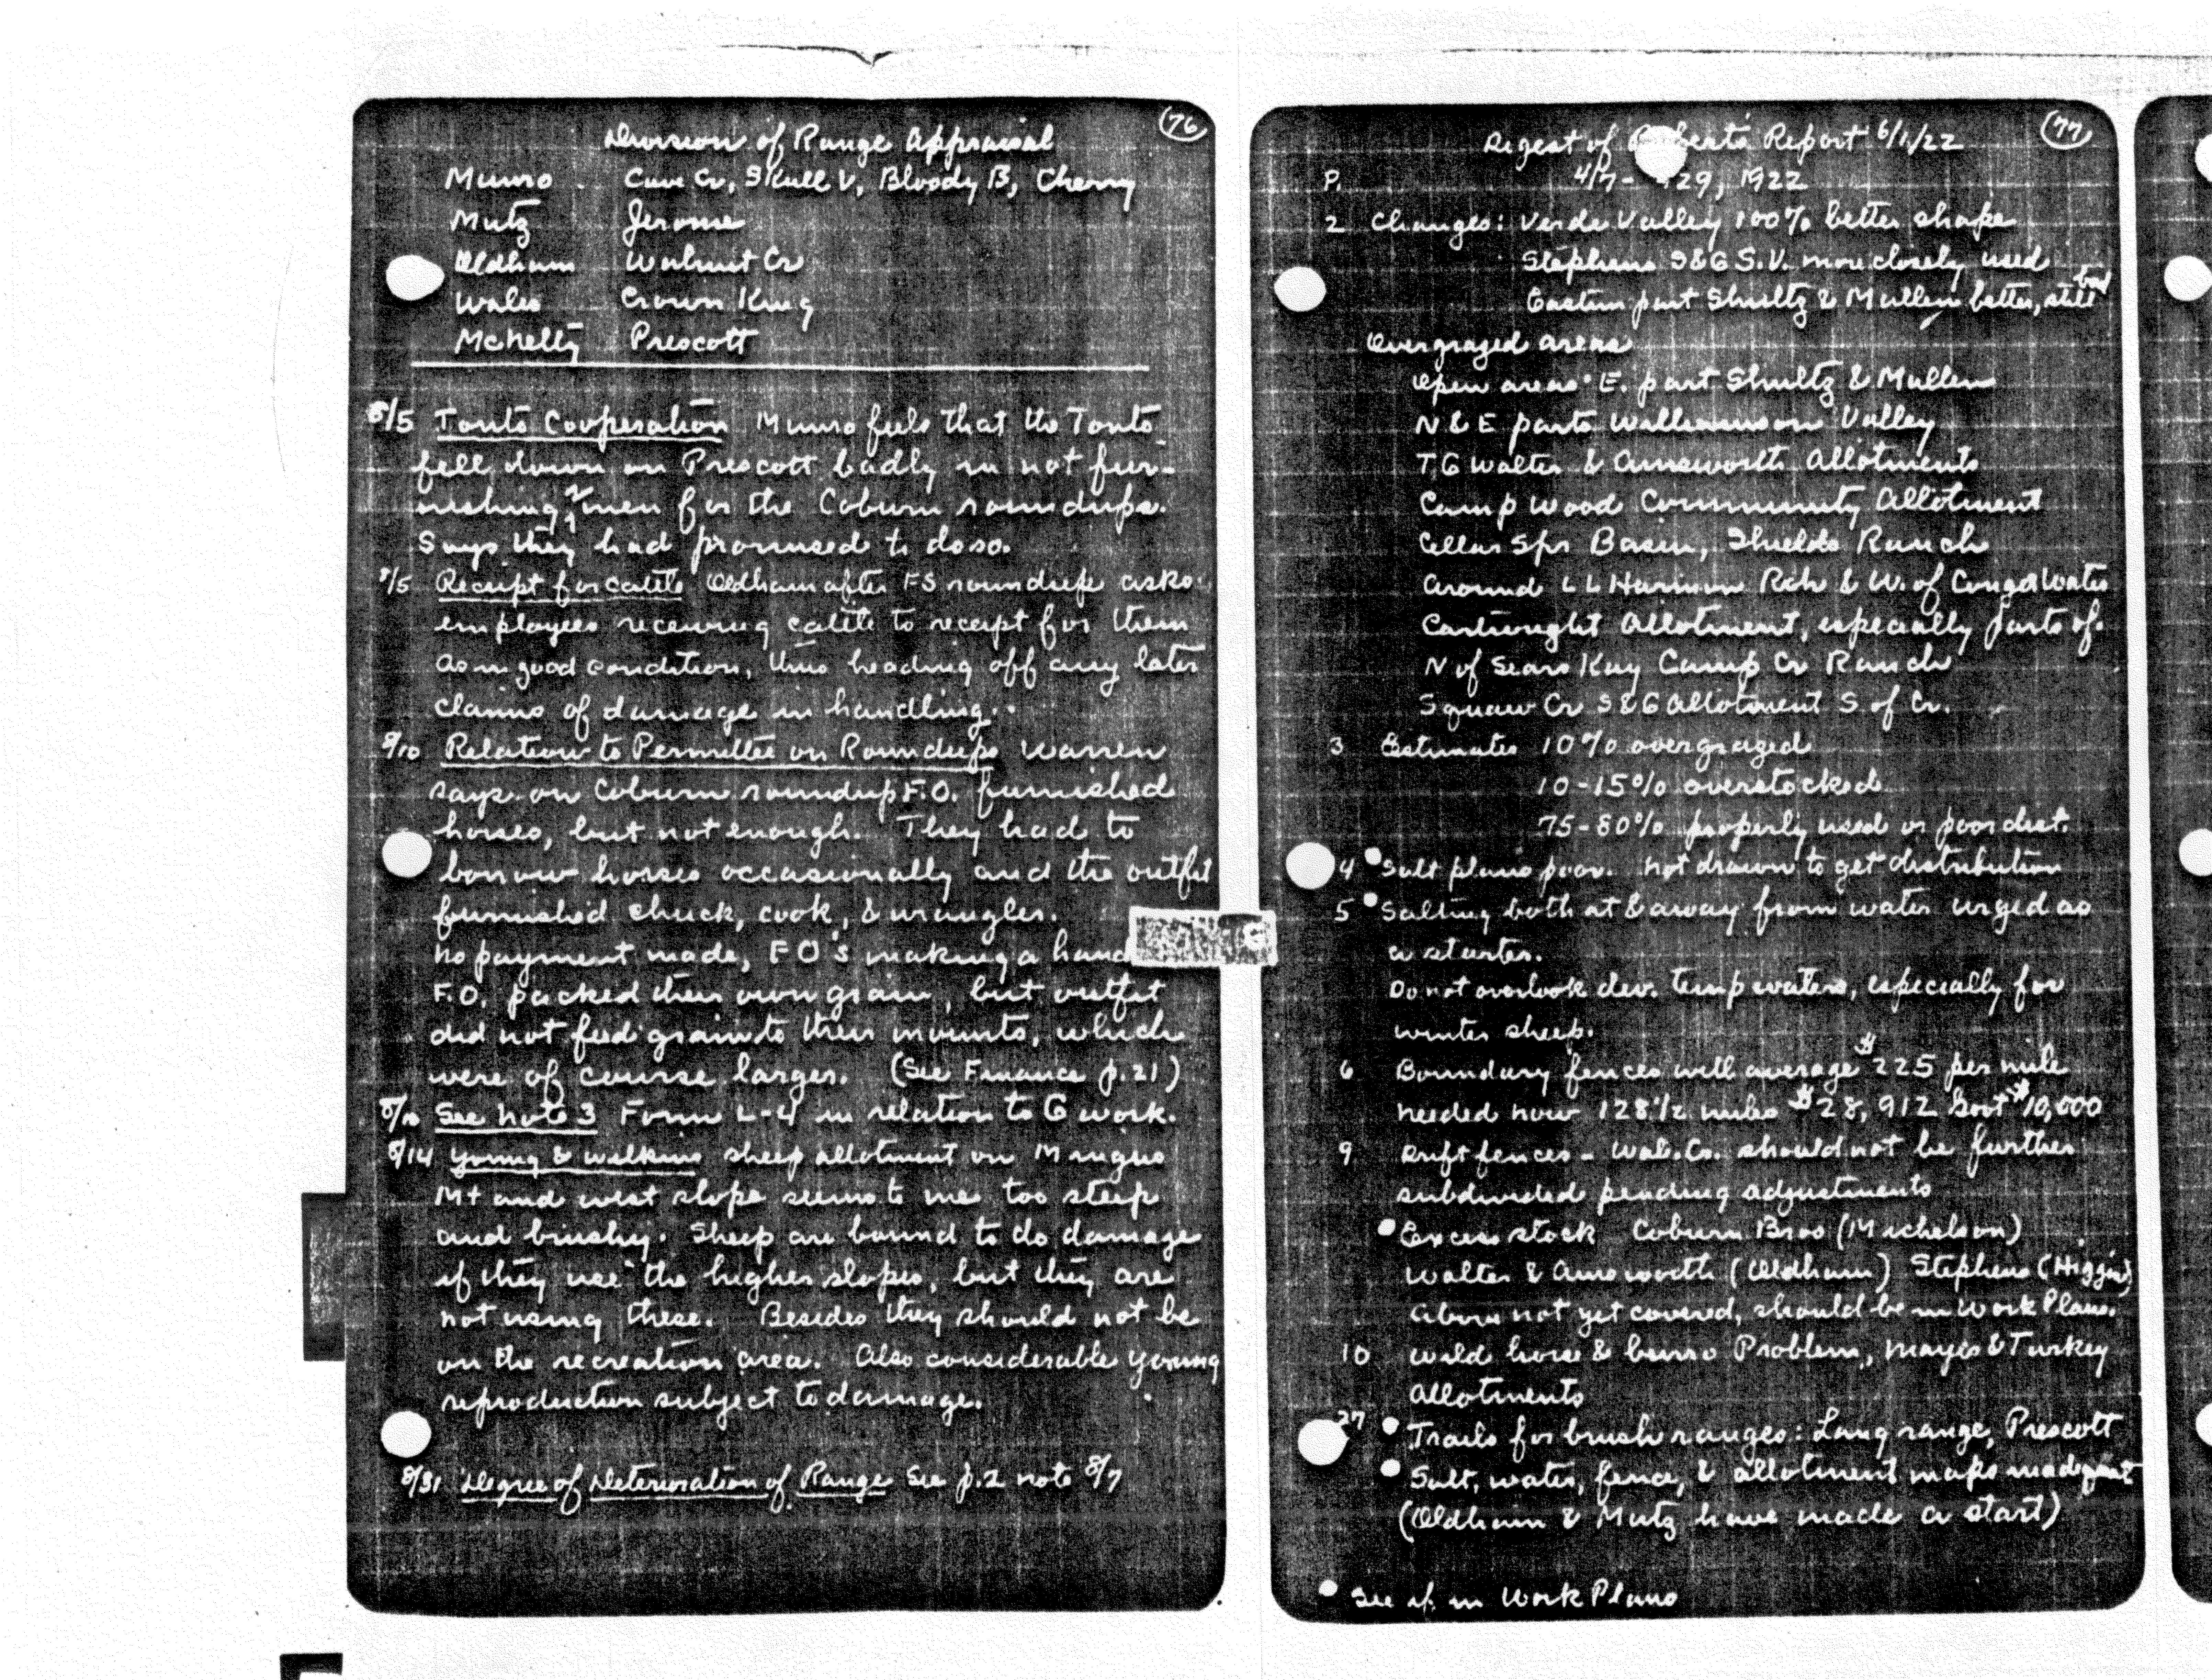 76
Division of Range Appraisal
Munro Cave Cr, Skull V, Bloody B, Cherry
Mutz Jerome
Oldham Walnut Cr
Wales Crown King
McNelty Prescott
8/5 Tonto Cooperation Munro feels that the Tonto
fell down on Prescott badly in not fur-
nishing 2 men for the Coburn roundups.
Says they had promised to do so.
8/5 Receipt for cattle Oldham after FS roundups asks
employees receiving cattle to receipt for them
as in good condition, thus heading off any later
claims of damage in handling.
8/10 Relation to Permittee on Roundups Warren
says on Coburn roundup F.O. furnished
horses, but not enough. They had to
borrow horses occasionally and the outfit
furnished chuck, cook, & wrangler.
No payment made, FO's making a hand
F.O. packed their own grain, but outfit
did not feed grain to their mounts, which
were of course larger. (See Finance p.21)
8/10 See Note 3 Form L-4 in relation to G work.
8/14 Young & Wilkins sheep allotment on Mingus
Mt and west slope seems to me too steep
and brushy. Sheep are bound to do damage
if they use the higher slopes, but they are
not using these. Besides they should not be
on the recreation area. Also considerable young
reproduction subject to damage.
8/31 Degree of Deterioration of Range See p.2 note 8/7
77
Digest of Report 6/1/22
4/7- 29, 1922
P.
2 Changes: Verde Valley 100% better shape
Stephens S&G S.V. more closely used
Eastern part Shultz & Mullen better, still bad
Overgrazed areas
Open areas E. part Shultz & Mullen
N & E parts Williamson Valley
T.G Walter & Ainsworth Allotments
Camp Wood Community Allotment
Cellar Spr Basin, Shields Ranch
Around L L Harrison Rch & W. of Conger Water
Cartwright Allotment, especially parts of.
N of Sears Kay Camp Cr Ranch
Squaw Cr S&G Allotment S of Cr.
3 Estimates 10% overgrazed
10-15% overstocked
75-80% properly used or poor dist.
4 Salt plans poor. Not drawn to get distribution
5 Salting both at & away from water urged as
a starter.
Do not overlook dev. temp waters, especially for
winter sheep.
6 Boundary fences will average $225 per mile
needed now 128 1/2 miles $28,912 Govt $10,000
9 Drift fences - Wal. Cr. should not be further
subdivided pending adjustments
Excess stock Coburn Bros (Michelson)
Walter & Ainsworth (Oldham) Stephens (Higgins)
Above not yet covered, should be in Work Plans.
10 Wild horse & burro Problem, Mayes & Turkey
Allotments
27 Trails for brush ranges: Long range, Prescott
Salt, water, fence, & allotment maps inadequate
(Oldham & Mutz have made a start)
See if in Work Plans